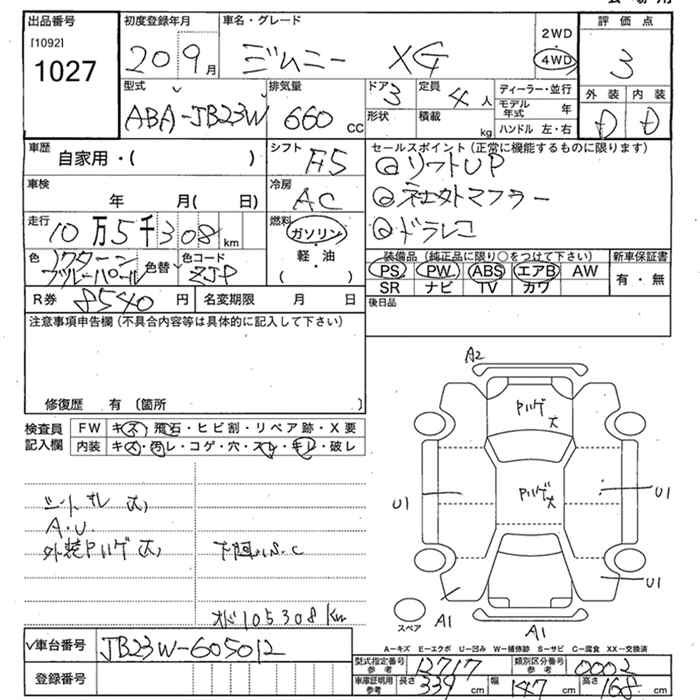 出品番号 初度登録年月 車名・グレード 評価点
[1092]
1027
20 9月 ジムニー XG 2WD 4WD 3
型式 排気量 ドア 定員 ディーラー・並行 外装 内装
ABA-JB23W 660 CC 3 4人 モデル年式 年 D D
形状 積載 kg ハンドル 左・右
車歴 シフト セールスポイント(正常に機能するものに限ります)
自家用・( ) F5 リフトUP
車検 冷房 社外マフラー
年 月( 日) AC ドラレコ
走行 燃料
10万5千308km ガソリン
軽・油
( )
色 色替 色コード 装備品(純正品に限り○をつけて下さい) 新車保証書
ノクターンブルーパール ZJP PS PW ABS エアB AW 有・無
SR ナビ TV カワ
R券 8540円 名変期限 月 日 後日品
注意事項申告欄(不具合内容等は具体的に記入して下さい)
修復歴 有(箇所 )
検査員記入欄 FW キズ・飛石・ヒビ割・リペア跡・X要
内装 キズ・汚レ・コゲ・穴・スレ・キレ・破レ
シートスレ 大
A.U.
外装Pハゲ 大 下廻りS.C
メーター105308km
A2
Pハゲ大
Pハゲ大
U1 U1
U1
A1
スペア
A1
A-キズ E-エクボ U-凹み W-補修跡 S-サビ C-腐食 XX-交換済
車台番号 JB23W-605012
登録番号
型式指定番号 参考 12717 類別区分番号 参考 0002
車庫証明用 参考 長さ 339cm 幅 147cm 高さ 168cm